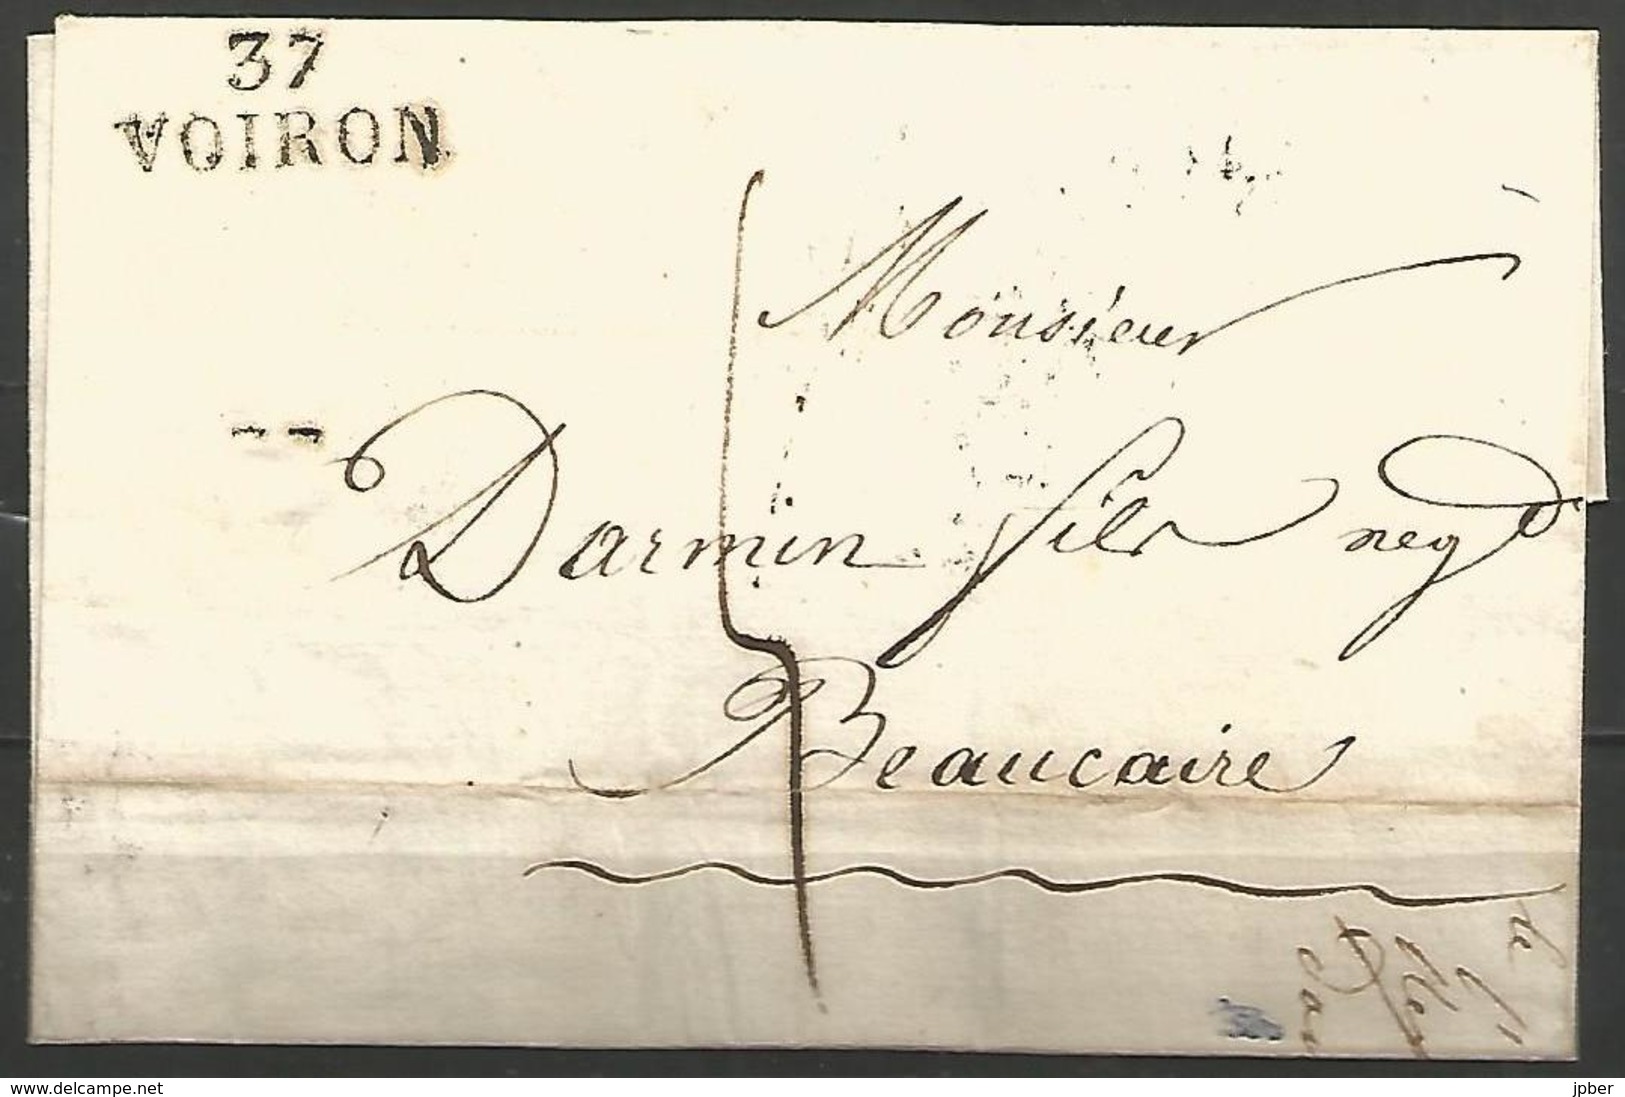 37
VOIRON
Monsieur
Darmin fils negt
Beaucaire
5
delcampe.net
jpber